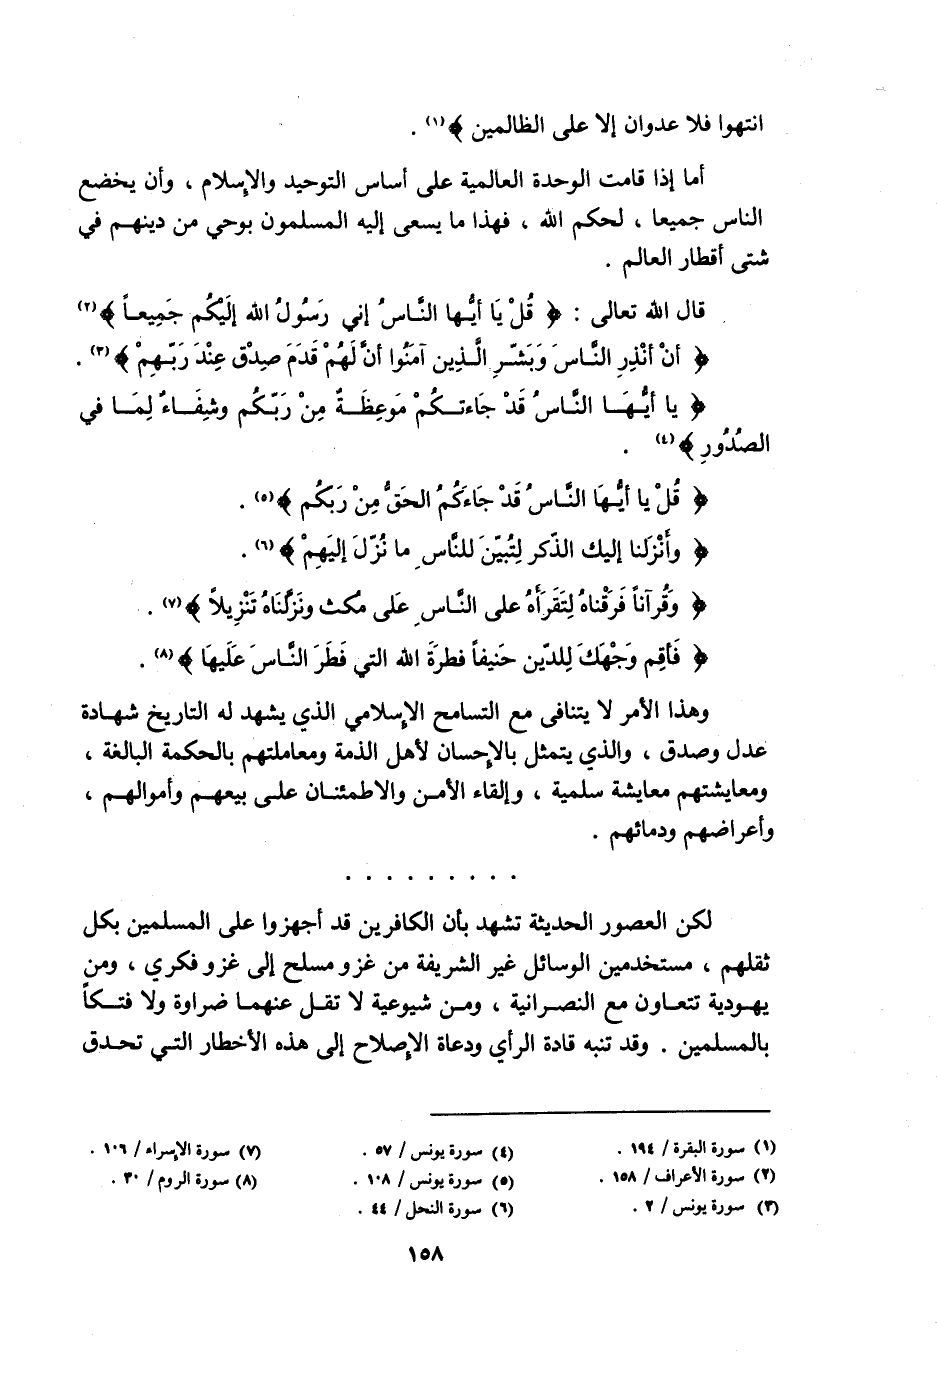 انتهوا فلا عدوان إلا على الظالمين ﴾(١) .
أما إذا قامت الوحدة العالمية على أساس التوحيد والإسلام ، وأن يخضع
الناس جميعا ، لحكم الله ، فهذا ما يسعى إليه المسلمون بوحي من دينهم في
شتى أقطار العالم .
قال الله تعالى : ﴿ قُلْ يَا أيُّها النَّاسُ إني رَسُولُ الله إلَيْكُم جَمِيعاً ﴾(٢)
﴿ أنْ أنْذِرِ النَّاسَ وَبَشّرِ الَّذِين آمَنُوا أنَّ لَهُمْ قَدَمَ صِدْقٍ عِنْدَ رَبّهِمْ ﴾(٣) .
﴿ يا أيُّهَا النَّاسُ قَدْ جَاءتكُمْ مَوعِظَةٌ مِنْ رَبّكُم وشِفَاءٌ لِمَا في
الصُدُورِ ﴾(٤) .
﴿ قُلْ يا أيُّهَا النَّاسُ قَدْ جَاءَكُمُ الحَقُّ مِنْ رَبَكُم ﴾(٥) .
﴿ وأَنْزَلنا إليك الذّكر لِتُبيّنَ للنَّاسِ ما نُزّلَ إليَهِمْ ﴾(٦) .
﴿ وَقُرآناً فَرَقْناهُ لِتَقرَأَهُ على النَّاسِ عَلى مُكث ونَزَّلْنَاهُ تَنْزِيلاً ﴾(٧) .
﴿ فَأقِم وَجْهَكَ لِلدّين حَنيفاً فطرَةَ الله التي فَطَرَ النَّاسَ عَلَيهَا ﴾(٨) .
وهذا الأمر لا يتنافى مع التسامح الإسلامي الذي يشهد له التاريخ شهادة
عدل وصدق ، والذي يتمثل بالإحسان لأهل الذمة ومعاملتهم بالحكمة البالغة ،
ومعايشتهم معايشة سلمية ، وإلقاء الأمن والاطمئنان على بيعهم وأموالهم ،
وأعراضهم ودمائهم .
. . . . . . . . .
لكن العصور الحديثة تشهد بأن الكافرين قد أجهزوا على المسلمين بكل
ثقلهم ، مستخدمين الوسائل غير الشريفة من غزو مسلح إلى غزو فكري ، ومن
يهودية تتعاون مع النصرانية ، ومن شيوعية لا تقل عنهما ضراوة ولا فتكاً
بالمسلمين . وقد تنبه قادة الرأي ودعاة الإصلاح إلى هذه الأخطار التي تحدق
(١) سورة البقرة / ١٩٤ .
(٢) سورة الأعراف / ١٥٨ .
(٣) سورة يونس / ٢ .
(٤) سورة يونس / ٥٧ .
(٥) سورة يونس / ١٠٨ .
(٦) سورة النحل / ٤٤ .
(٧) سورة الإسراء / ١٠٦ .
(٨) سورة الروم / ٣٠ .
١٥٨